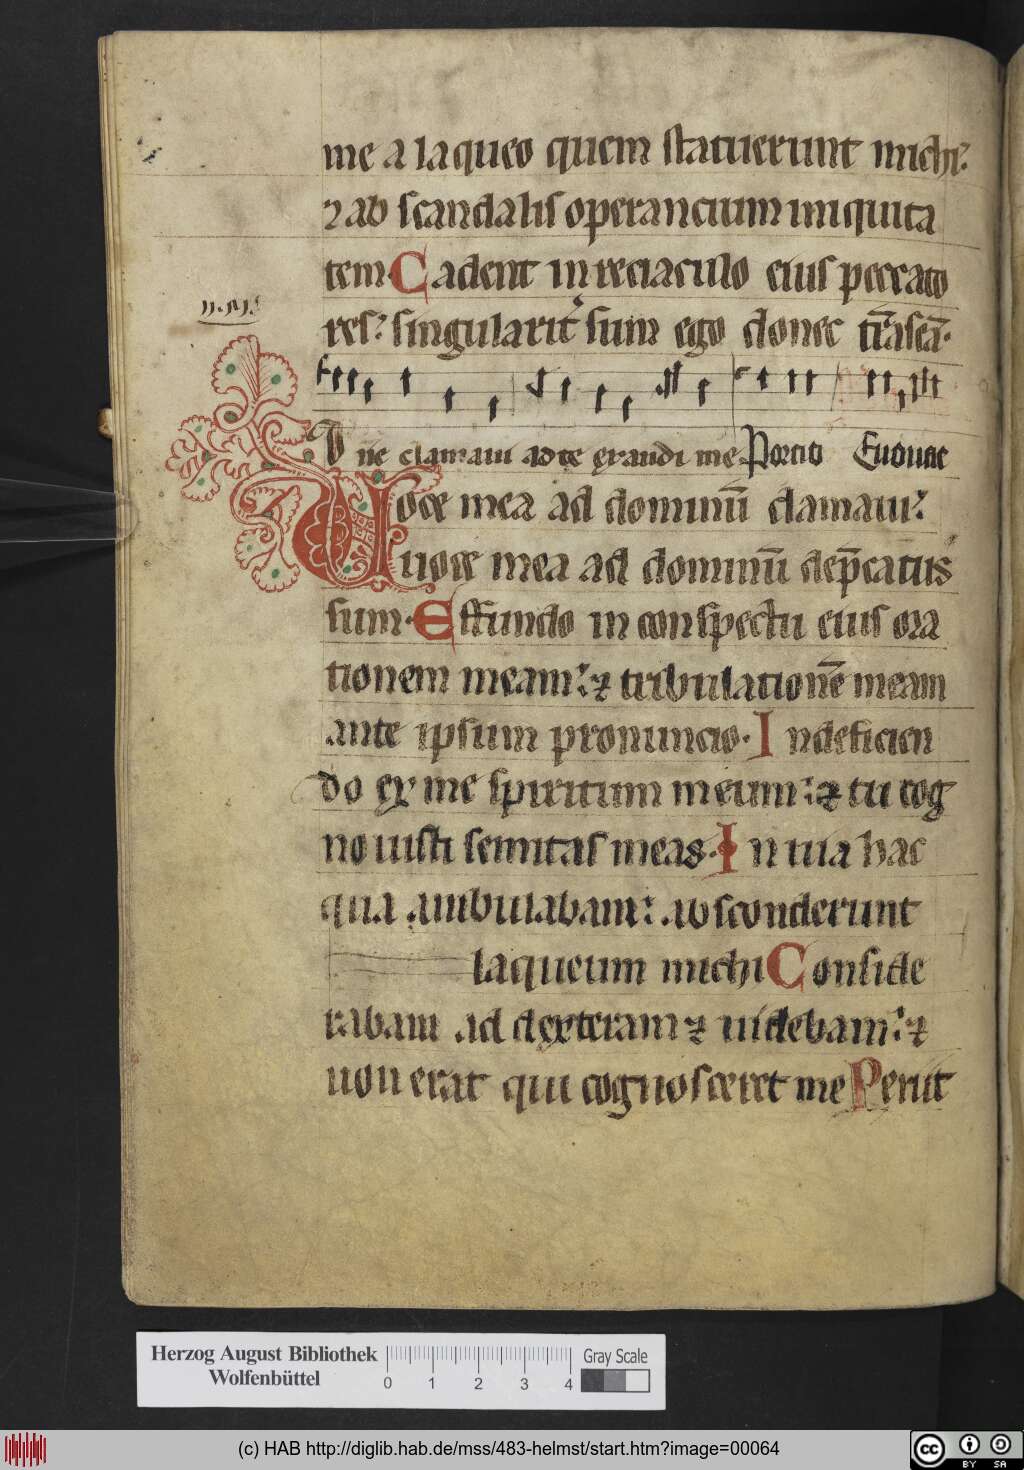 me a laqueo quem statuerunt michi:
⁊ ab scandalis operancium iniquita
tem. Cadent in reciaculo eius peccato
res: singularit᷑ sum ego donec trāseā.
Dn̄e clamaui ad te exaudi me Porcio Euouae
Uoce mea ad dominū clamaui:
uoce mea ad dominū dep̄catus
sum. Effundo in conspectu eius ora
tionem meam: ⁊ tribulationē meam
ante ipsum pronuncio. In deficien
do ex me spiritum meum: ⁊ tu cog
nouisti semitas meas. In uia hac
qua ambulabam: absconderunt
laqueum michi Conside
rabam ad dexteram ⁊ uidebam: ⁊
non erat qui cognosceret me Periit
Herzog August Bibliothek
Wolfenbüttel
0 1 2 3 4
Gray Scale
(c) HAB http://diglib.hab.de/mss/483-helmst/start.htm?image=00064
cc BY SA